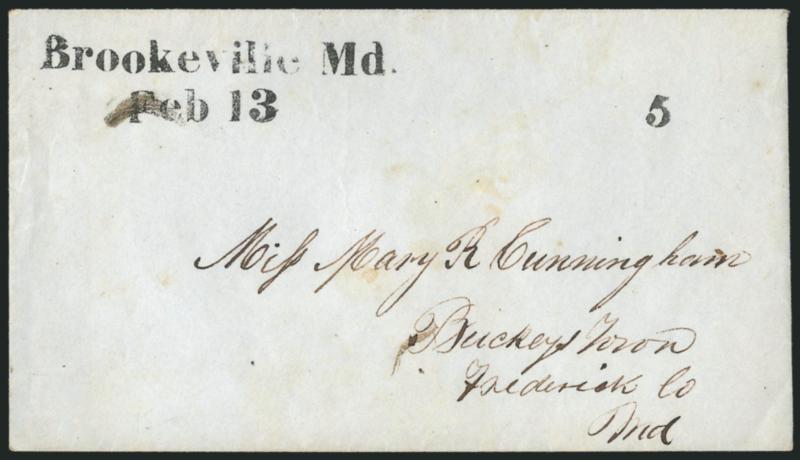 Brookeville Md.
Feb 13
5
Miſs Mary R Cunningham
Buckeys Town
Frederick Co
Md